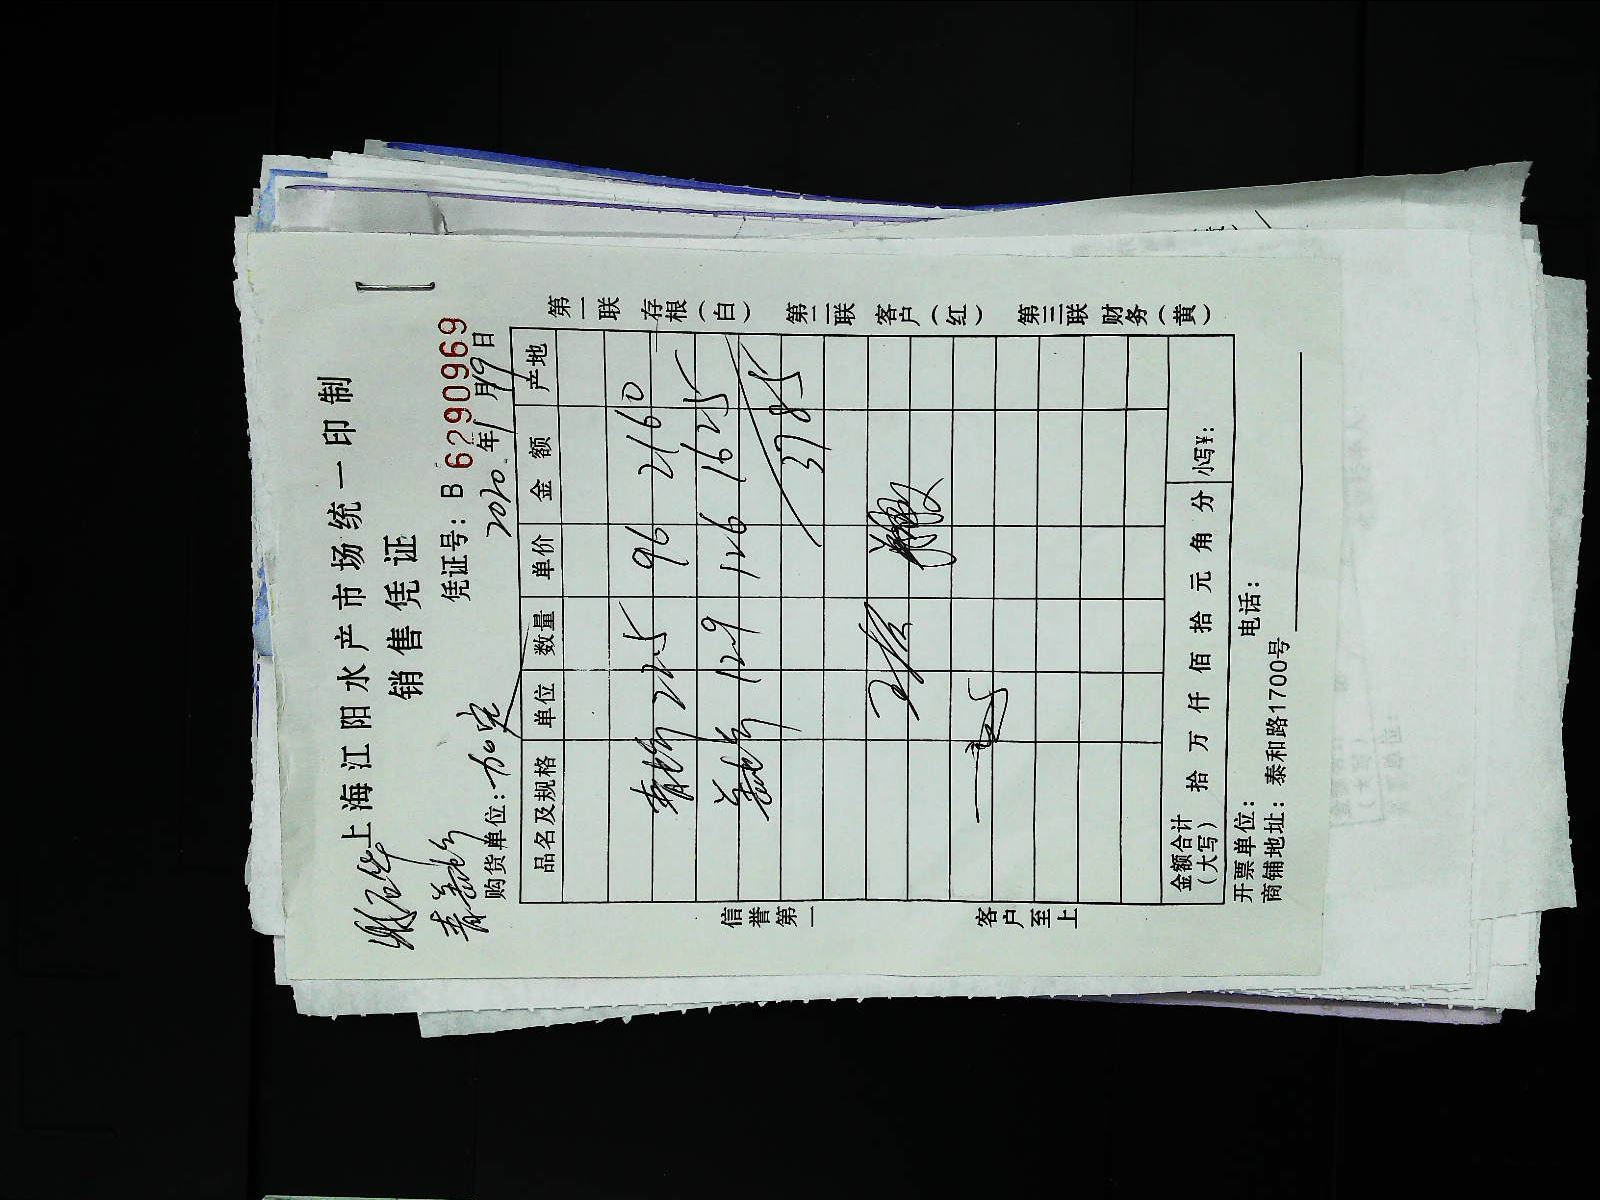 上海江阳水产市场统一印制
销售凭证
凭证号：B 6290969
购货单位：
2020年1月19日
品名及规格 单位 数量 单价 金额 产地
青 22.5 96 2160
12.9 126 1625
3785
金额合计（大写） 拾 万 仟 佰 拾 元 角 分 小写¥：
开票单位： 电话：
商铺地址：泰和路1700号
信誉第一 客户至上
第一联 存根（白） 第二联 客户（红） 第三联 财务（黄）